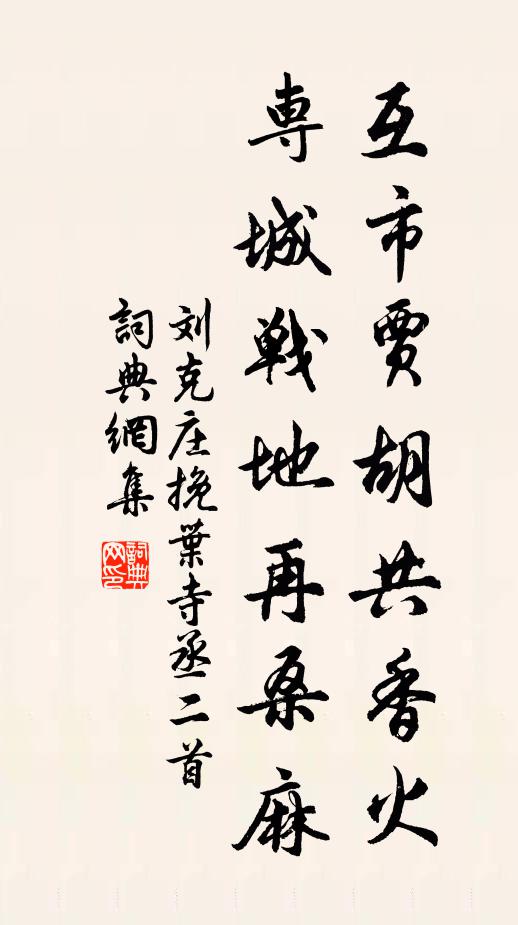 互市賈胡共香火
専城戦地再桑麻
刘克庄挽葉寺丞二首
詞典網集
詞典网印